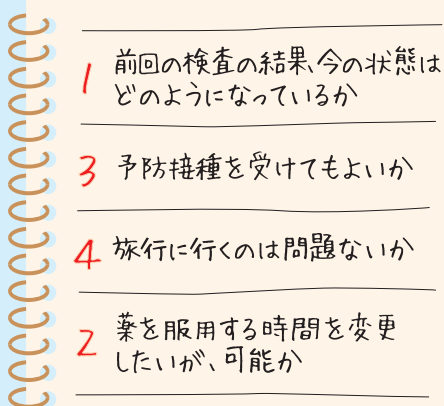 1 前回の検査の結果、今の状態は
どのようになっているか
3 予防接種を受けてもよいか
4 旅行に行くのは問題ないか
2 薬を服用する時間を変更
したいが、可能か